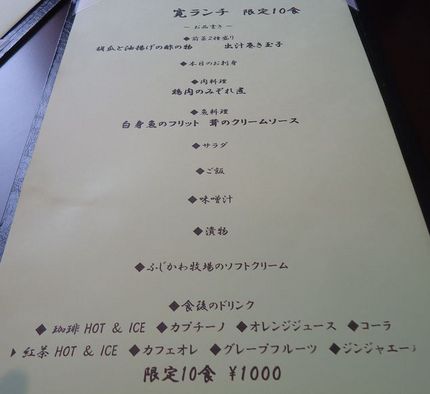 寛ランチ 限定10食
～お品書き～
◆前菜2種盛り
胡瓜と油揚げの酢の物 出汁巻き玉子
◆本日のお刺身
◆肉料理
鶏肉のみぞれ煮
◆魚料理
白身魚のフリット 茸のクリームソース
◆サラダ
◆ご飯
◆味噌汁
◆漬物
◆ふじかわ牧場のソフトクリーム
◆食後のドリンク
◆珈琲 HOT & ICE ◆カプチーノ ◆オレンジジュース ◆コーラ
◆紅茶 HOT & ICE ◆カフェオレ ◆グレープフルーツ ◆ジンジャエー
限定10食 ¥1000